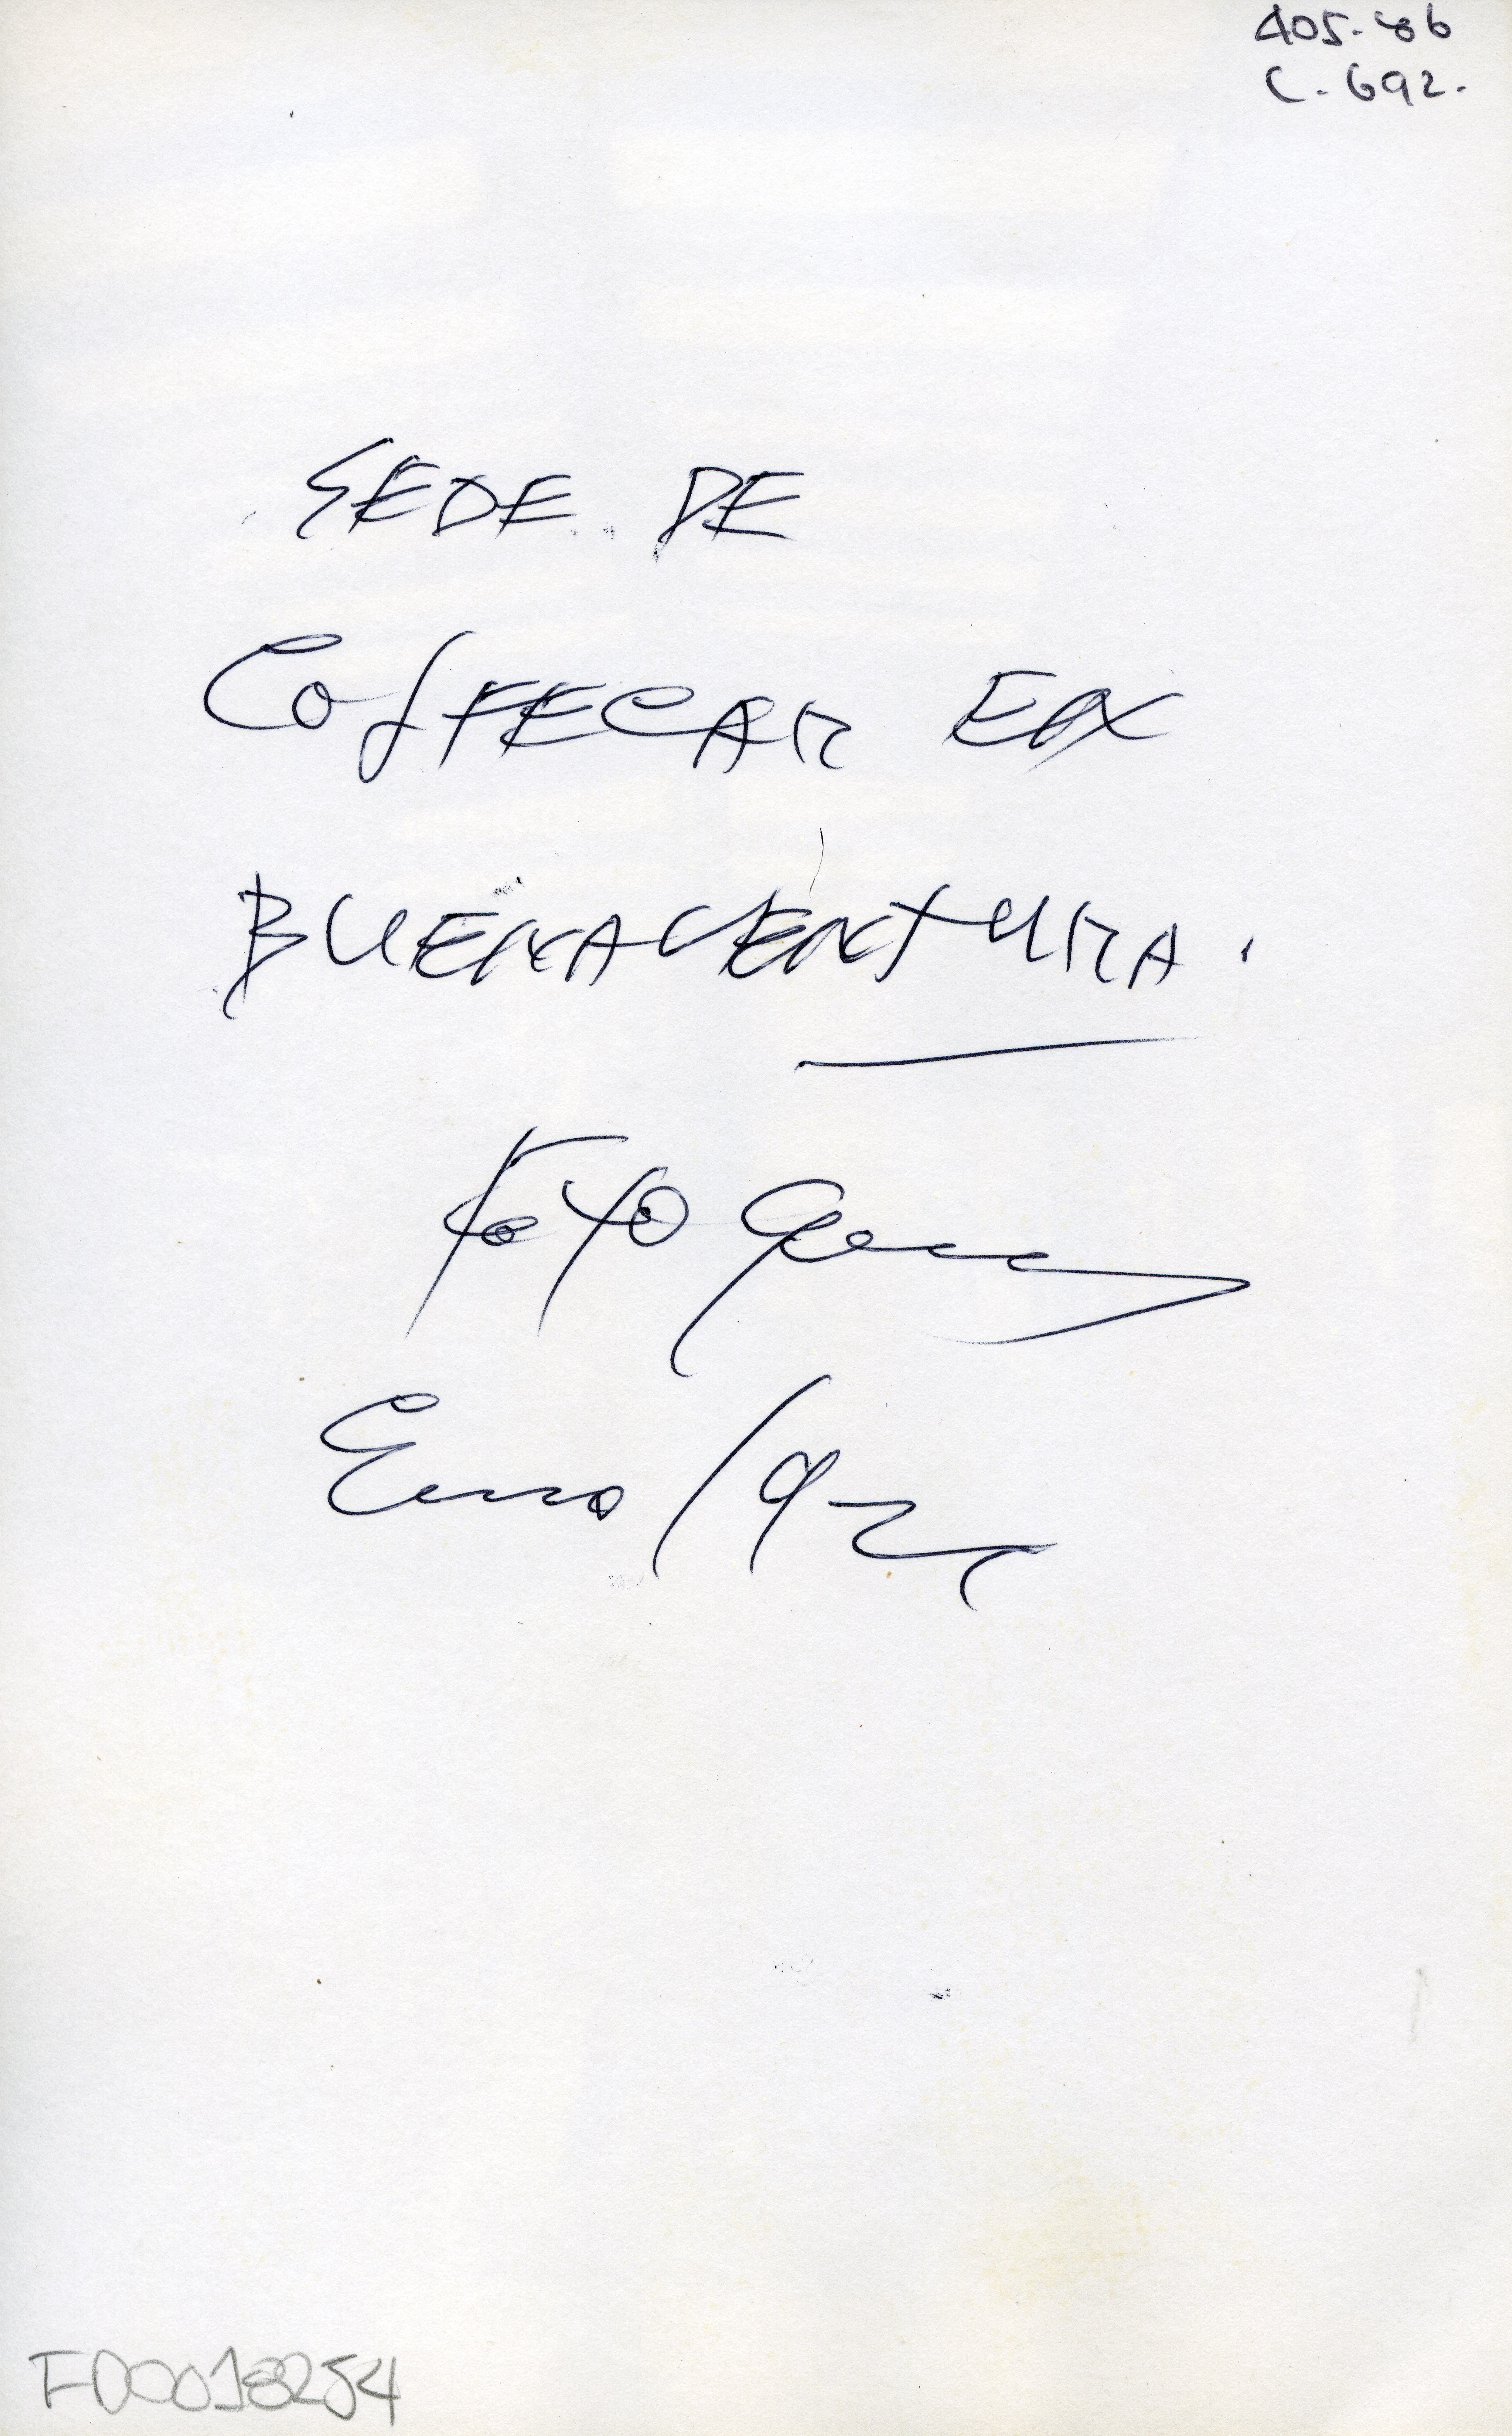 405-86
C. 692.
SEDE DE
COLFECAR EN
BUENAVENTURA.
FOTO
Enero/92
FD0018254